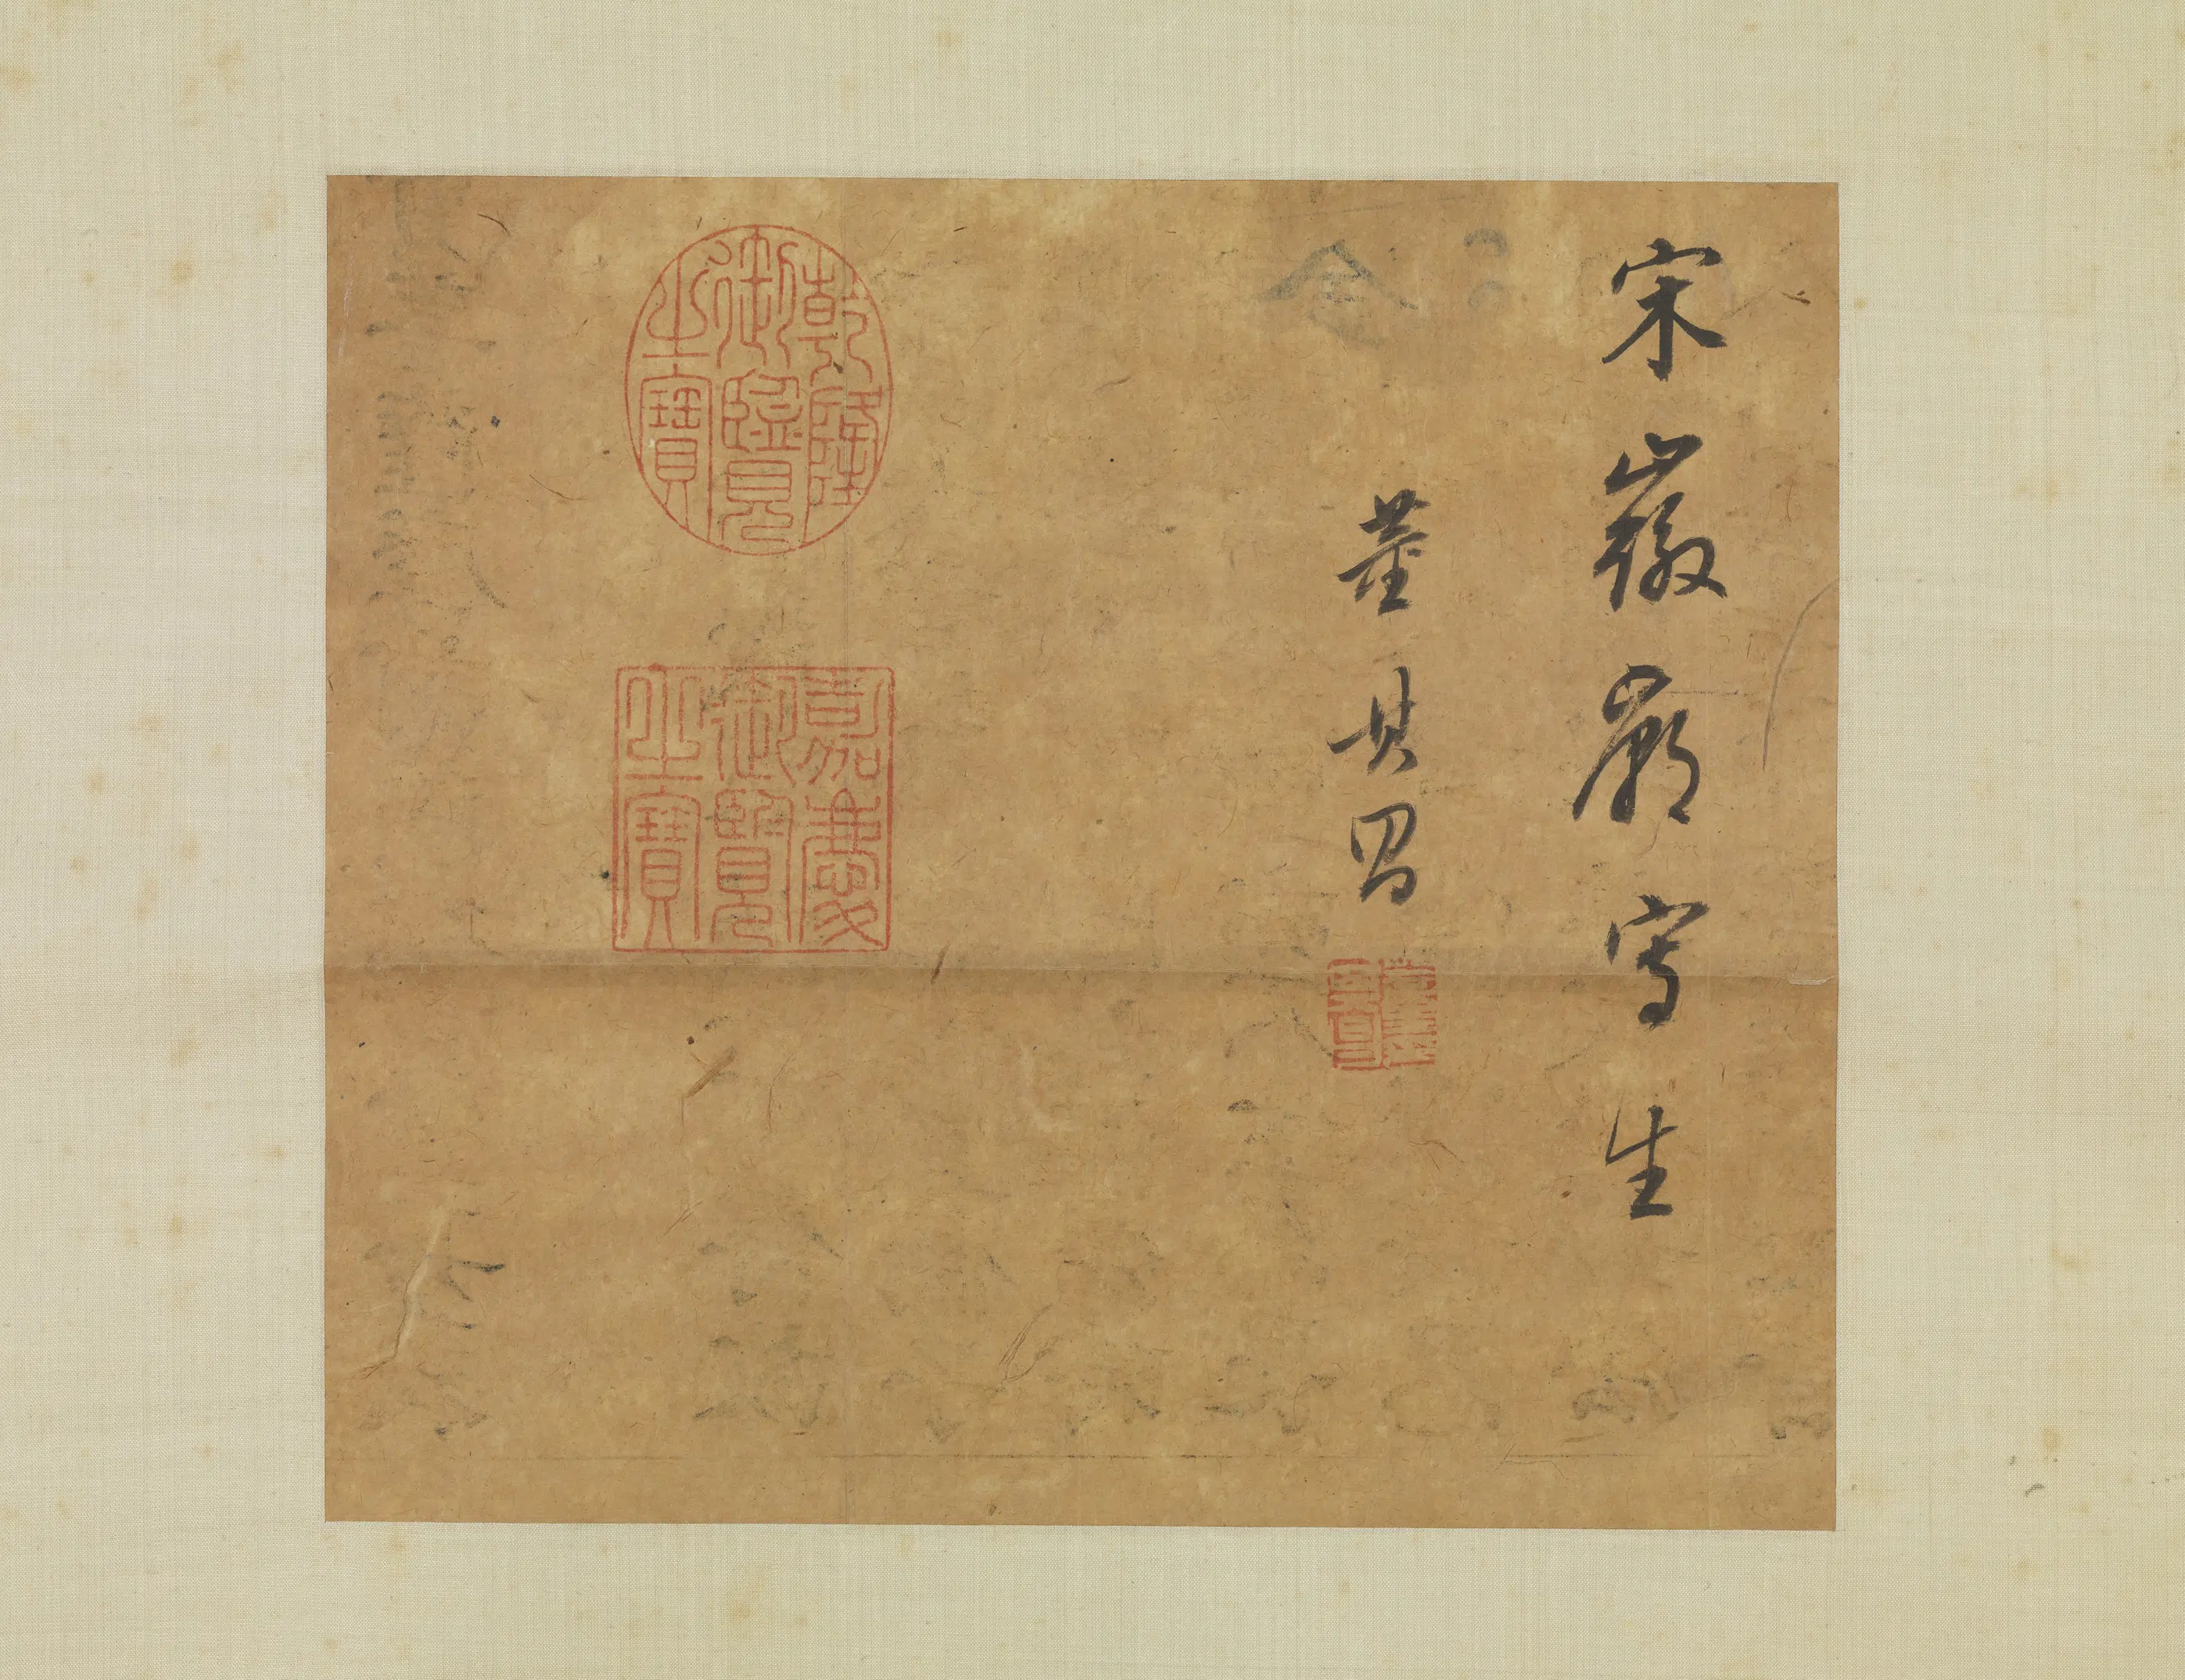 宋徽廟寫生
董其昌
董其昌
乾隆御覽之寶
嘉慶御覽之寶